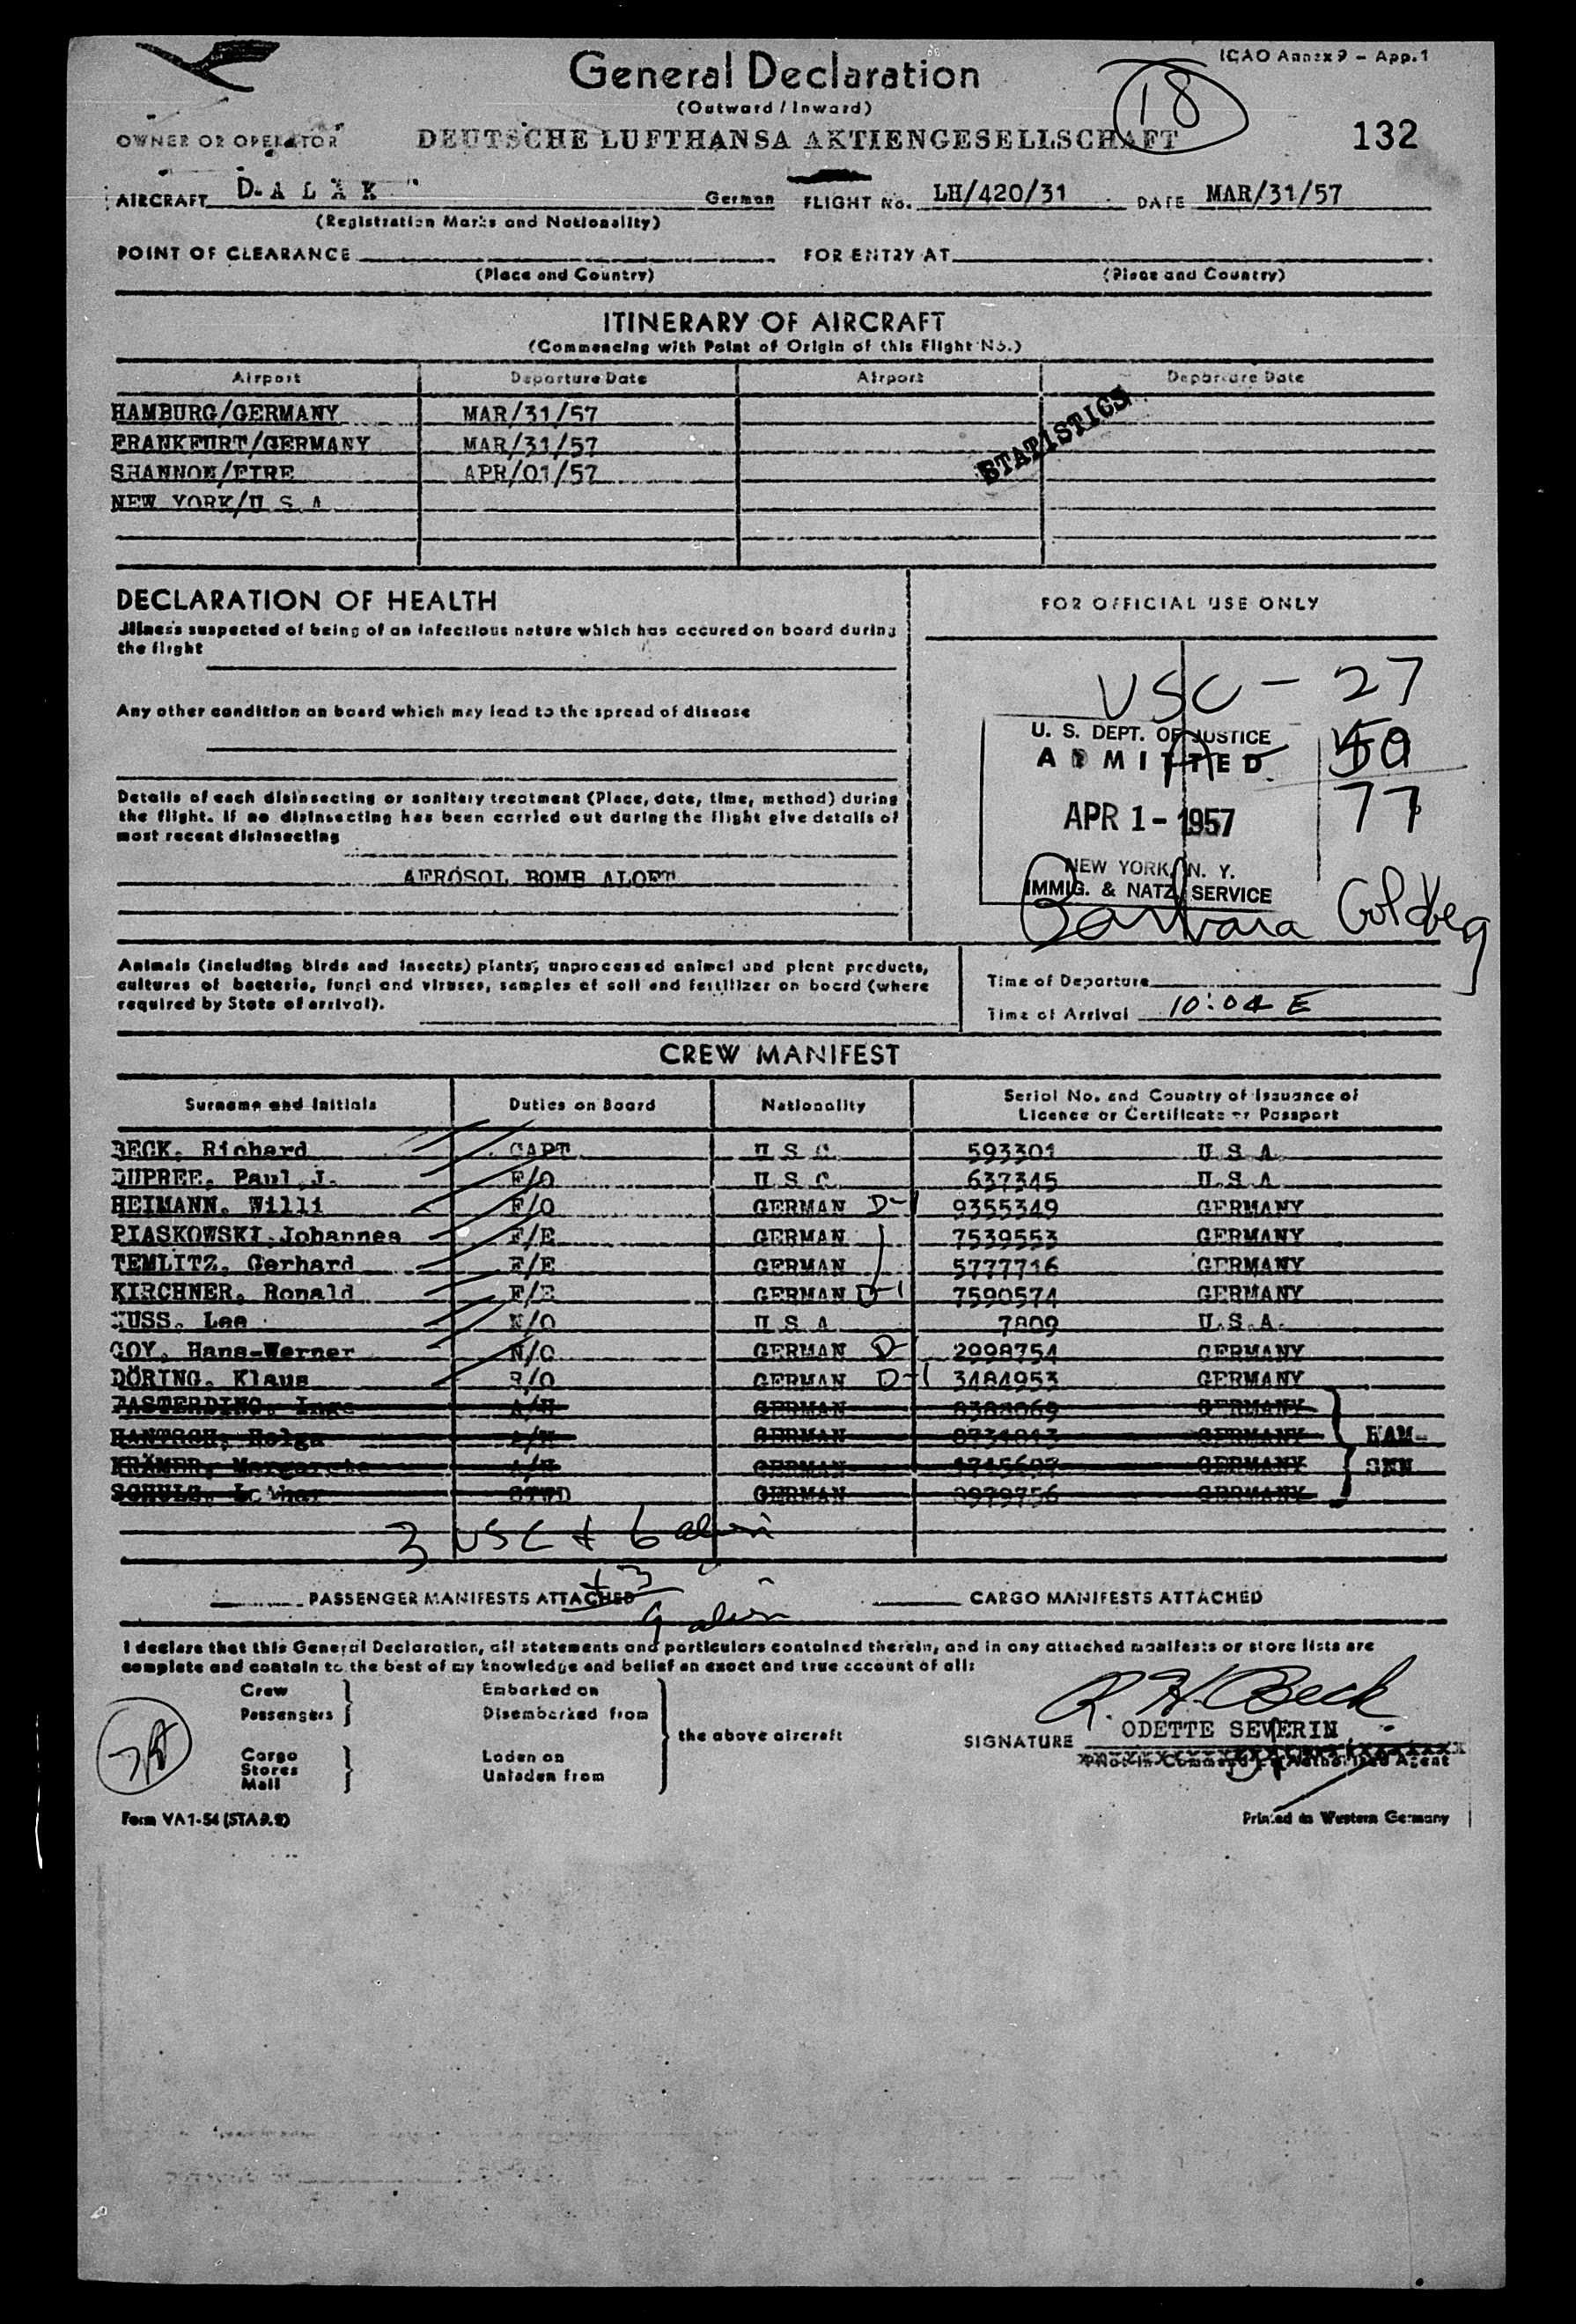 ICAO Annex 9 – App.1
General Declaration
(Outward / Inward)
18
132
OWNER OR OPERATOR DEUTSCHE LUFTHANSA AKTIENGESELLSCHAFT
AIRCRAFT D-A L A K German FLIGHT No. LH/420/31 DATE MAR/31/57
(Registration Marks and Nationality)
POINT OF CLEARANCE FOR ENTRY AT
(Place and Country) (Place and Country)
ITINERARY OF AIRCRAFT
(Commencing with Point of Origin of this Flight No.)
Airport Departure Date Airport Departure Date
HAMBURG/GERMANY MAR/31/57
FRANKFURT/GERMANY MAR/31/57
SHANNON/EIRE APR/01/57
NEW YORK/U S A
STATISTICS
DECLARATION OF HEALTH
Illness suspected of being of an infectious nature which has occured on board during
the flight
Any other condition on board which may lead to the spread of disease
Details of each disinsecting or sanitary treatment (Place, date, time, method) during
the flight. If no disinsecting has been carried out during the flight give details of
most recent disinsecting
AEROSOL BOMB ALOFT
FOR OFFICIAL USE ONLY
USC – 27
A 50
77
U. S. DEPT. OF JUSTICE
ADMITTED
APR 1 - 1957
NEW YORK, N. Y.
IMMIG. & NATZ. SERVICE
Barbara Goldberg
Animals (including birds and insects) plants, unprocessed animal and plant products,
cultures of bacteria, fungi and viruses, samples of soil and fertilizer on board (where
required by State of arrival).
Time of Departure
Time of Arrival 10:04 E
CREW MANIFEST
Surname and Initials Duties on Board Nationality Serial No. and Country of Issuance of
Licence or Certificate or Passport
BECK, Richard CAPT U S C 593301 U S A
DUPREE, Paul J. F/O U S C 637345 U.S.A
HEIMANN, Willi F/O GERMAN D-1 9355349 GERMANY
PIASKOWSKI Johannes F/E GERMAN 7539553 GERMANY
TEMLITZ, Gerhard F/E GERMAN 5777716 GERMANY
KIRCHNER, Ronald F/E GERMAN D-1 7590574 GERMANY
HUSS, Lee N/O U S A 7809 U.S.A.
GOY, Hans-Werner N/O GERMAN D- 2998754 GERMANY
DÖRING, Klaus R/O GERMAN D-1 3484953 GERMANY
FASTERDING, Inge A/H GERMAN GERMANY
HANTSCH, Helga A/H GERMAN GERMANY HAM-
KRÄMER, Margarete A/H GERMAN GERMANY SNN
SCHULZ, Lothar STWD GERMAN 8979756 GERMANY
3 USC + 6 alien
+ 3
9 alien
PASSENGER MANIFESTS ATTACHED CARGO MANIFESTS ATTACHED
I declare that this General Declaration, all statements and particulars contained therein, and in any attached manifests or store lists are
complete and contain to the best of my knowledge and belief an exact and true account of all:
Crew Embarked on
Passengers Disembarked from
the above aircraft
Cargo Laden on
Stores
Mail Unladen from
R. H. Beck
ODETTE SEVERIN
SIGNATURE
Pilot in Command or Authorised Agent
Form VA 1-54 (STA P.9)
Printed in Western Germany